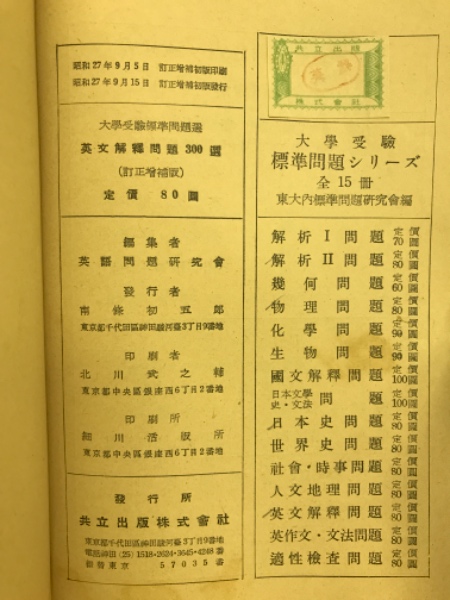 昭和27年9月5日 訂正增補初版印刷
昭和27年9月15日 訂正增補初版發行
大學受驗標準問題選
英文解釋問題300選
(訂正增補版)
定價 80圓
編集者
英語問題研究會
發行者
南條初五郎
東京都千代田區神田駿河臺3丁目9番地
印刷者
北川武之輔
東京都中央區銀座西6丁目2番地
印刷所
細川活版所
東京都中央區銀座西6丁目2番地
發行所
共立出版株式會社
東京都千代田區神田駿河臺3丁目9番地
電話神田(25)1518・2624・3645・4248番
振替東京 57035番
共立出版
株式會社
大學受驗
標準問題シリーズ
全15冊
東大內標準問題研究會編
解析I問題 定價70圓
解析II問題 定價80圓
幾何問題 定價60圓
物理問題 定價80圓
化學問題 定價90圓
生物問題 定價90圓
國文解釋問題 定價100圓
日本文學史・文法問題 定價100圓
日本史問題 定價80圓
世界史問題 定價80圓
社會・時事問題 定價80圓
人文地理問題 定價80圓
英文解釋問題 定價80圓
英作文・文法問題 定價80圓
適性檢查問題 定價80圓